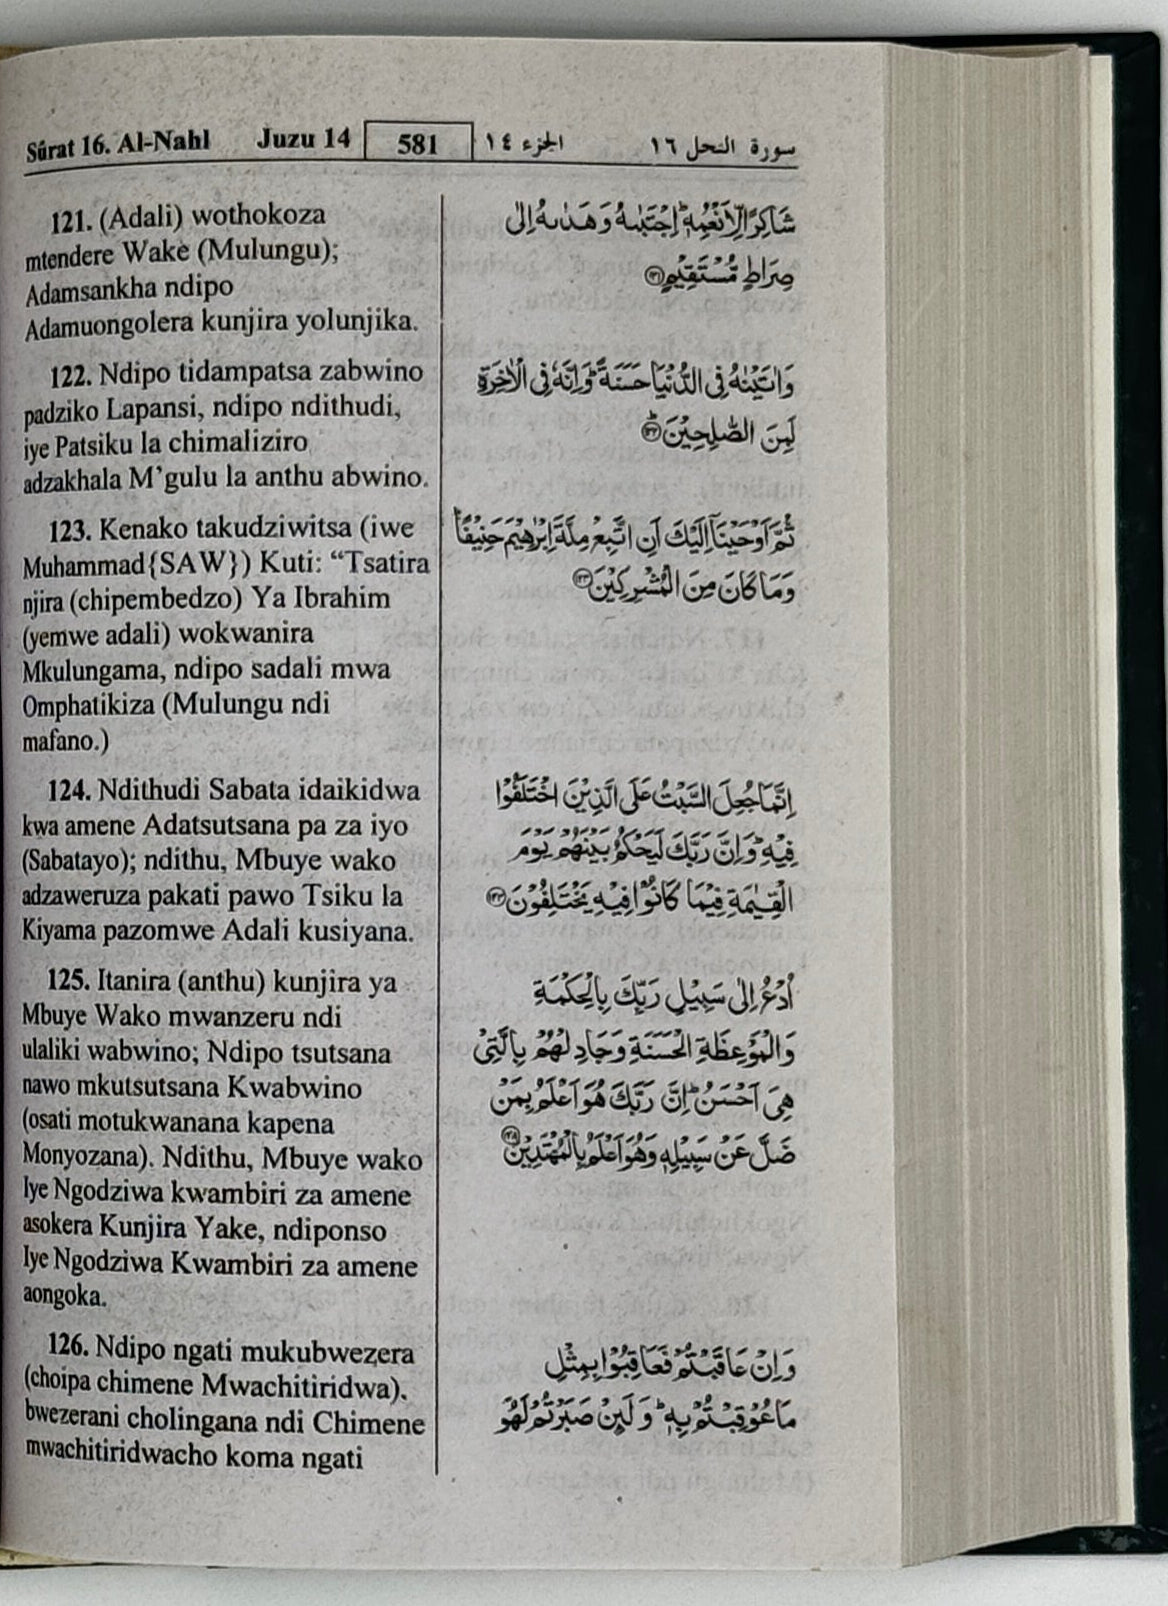 Sûrat 16. Al-Nahl Juzu 14 581 الجزء ١٤ سورة النحل ١٦
121. (Adali) wothokoza
mtendere Wake (Mulungu);
Adamsankha ndipo
Adamuongolera kunjira yolunjika.
122. Ndipo tidampatsa zabwino
padziko Lapansi, ndipo ndithudi,
iye Patsiku la chimaliziro
adzakhala M’gulu la anthu abwino.
123. Kenako takudziwitsa (iwe
Muhammad{SAW}) Kuti: “Tsatira
njira (chipembedzo) Ya Ibrahim
(yemwe adali) wokwanira
Mkulungama, ndipo sadali mwa
Omphatikiza (Mulungu ndi
mafano.)
124. Ndithudi Sabata idaikidwa
kwa amene Adatsutsana pa za iyo
(Sabatayo); ndithu, Mbuye wako
adzaweruza pakati pawo Tsiku la
Kiyama pazomwe Adali kusiyana.
125. Itanira (anthu) kunjira ya
Mbuye Wako mwanzeru ndi
ulaliki wabwino; Ndipo tsutsana
nawo mkutsutsana Kwabwino
(osati motukwanana kapena
Monyozana). Ndithu, Mbuye wako
Iye Ngodziwa kwambiri za amene
asokera Kunjira Yake, ndiponso
Iye Ngodziwa Kwambiri za amene
aongoka.
126. Ndipo ngati mukubwezera
(choipa chimene Mwachitiridwa),
bwezerani cholingana ndi Chimene
mwachitiridwacho koma ngati
شَاكِرًا لِّاَنْعُمِهٖ ؕ اِجْتَبٰىهُ وَهَدٰىهُ اِلٰى
صِرَاطٍ مُّسْتَقِيْمٍ ۝١٢١
وَاٰتَيْنٰهُ فِى الدُّنْيَا حَسَنَةً ؕ وَاِنَّهٗ فِى الْاٰخِرَةِ
لَمِنَ الصّٰلِحِيْنَ ؕ ۝١٢٢
ثُمَّ اَوْحَيْنَاۤ اِلَيْكَ اَنِ اتَّبِعْ مِلَّةَ اِبْرٰهِيْمَ حَنِيْفًا ؕ
وَمَا كَانَ مِنَ الْمُشْرِكِيْنَ ۝١٢٣
اِنَّمَا جُعِلَ السَّبْتُ عَلَى الَّذِيْنَ اخْتَلَفُوْا
فِيْهِ ؕ وَاِنَّ رَبَّكَ لَيَحْكُمُ بَيْنَهُمْ يَوْمَ
الْقِيٰمَةِ فِيْمَا كَانُوْا فِيْهِ يَخْتَلِفُوْنَ ۝١٢٤
اُدْعُ اِلٰى سَبِيْلِ رَبِّكَ بِالْحِكْمَةِ
وَالْمَوْعِظَةِ الْحَسَنَةِ وَجَادِلْهُمْ بِالَّتِىْ
هِىَ اَحْسَنُ ؕ اِنَّ رَبَّكَ هُوَ اَعْلَمُ بِمَنْ
ضَلَّ عَنْ سَبِيْلِهٖ وَهُوَ اَعْلَمُ بِالْمُهْتَدِيْنَ ۝١٢٥
وَاِنْ عَاقَبْتُمْ فَعَاقِبُوْا بِمِثْلِ
مَا عُوْقِبْتُمْ بِهٖ ؕ وَلَئِنْ صَبَرْتُمْ لَهُوَ